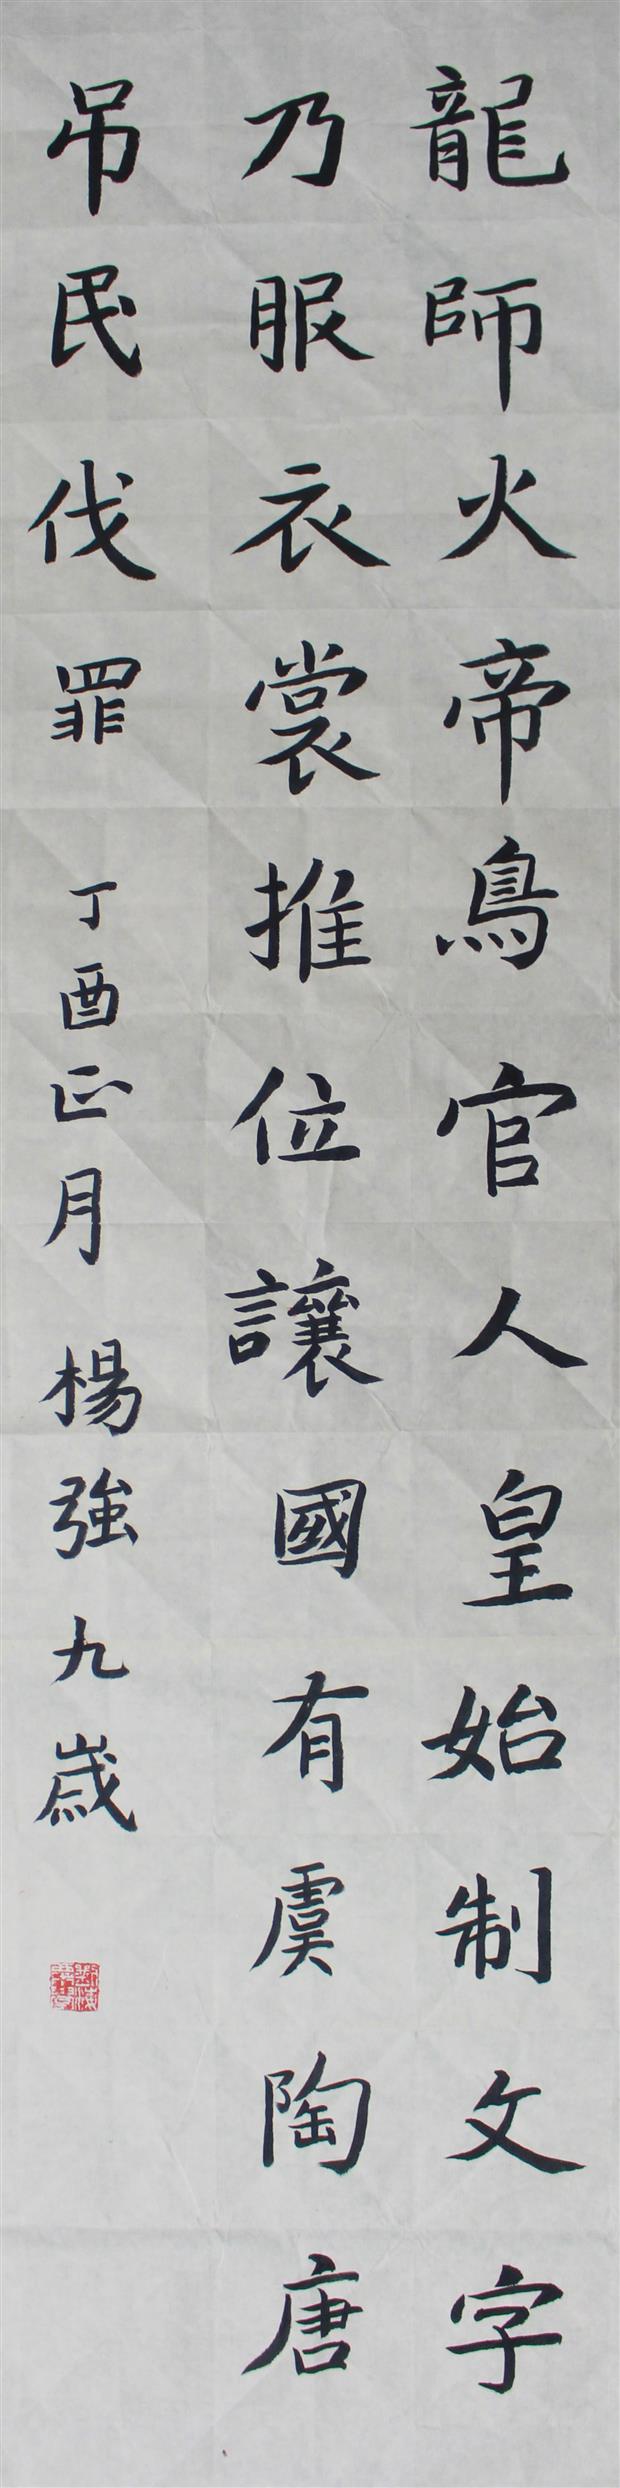 龍師火帝鳥官人皇始制文字
乃服衣裳推位讓國有虞陶唐
吊民伐罪 丁酉正月 楊強九歲